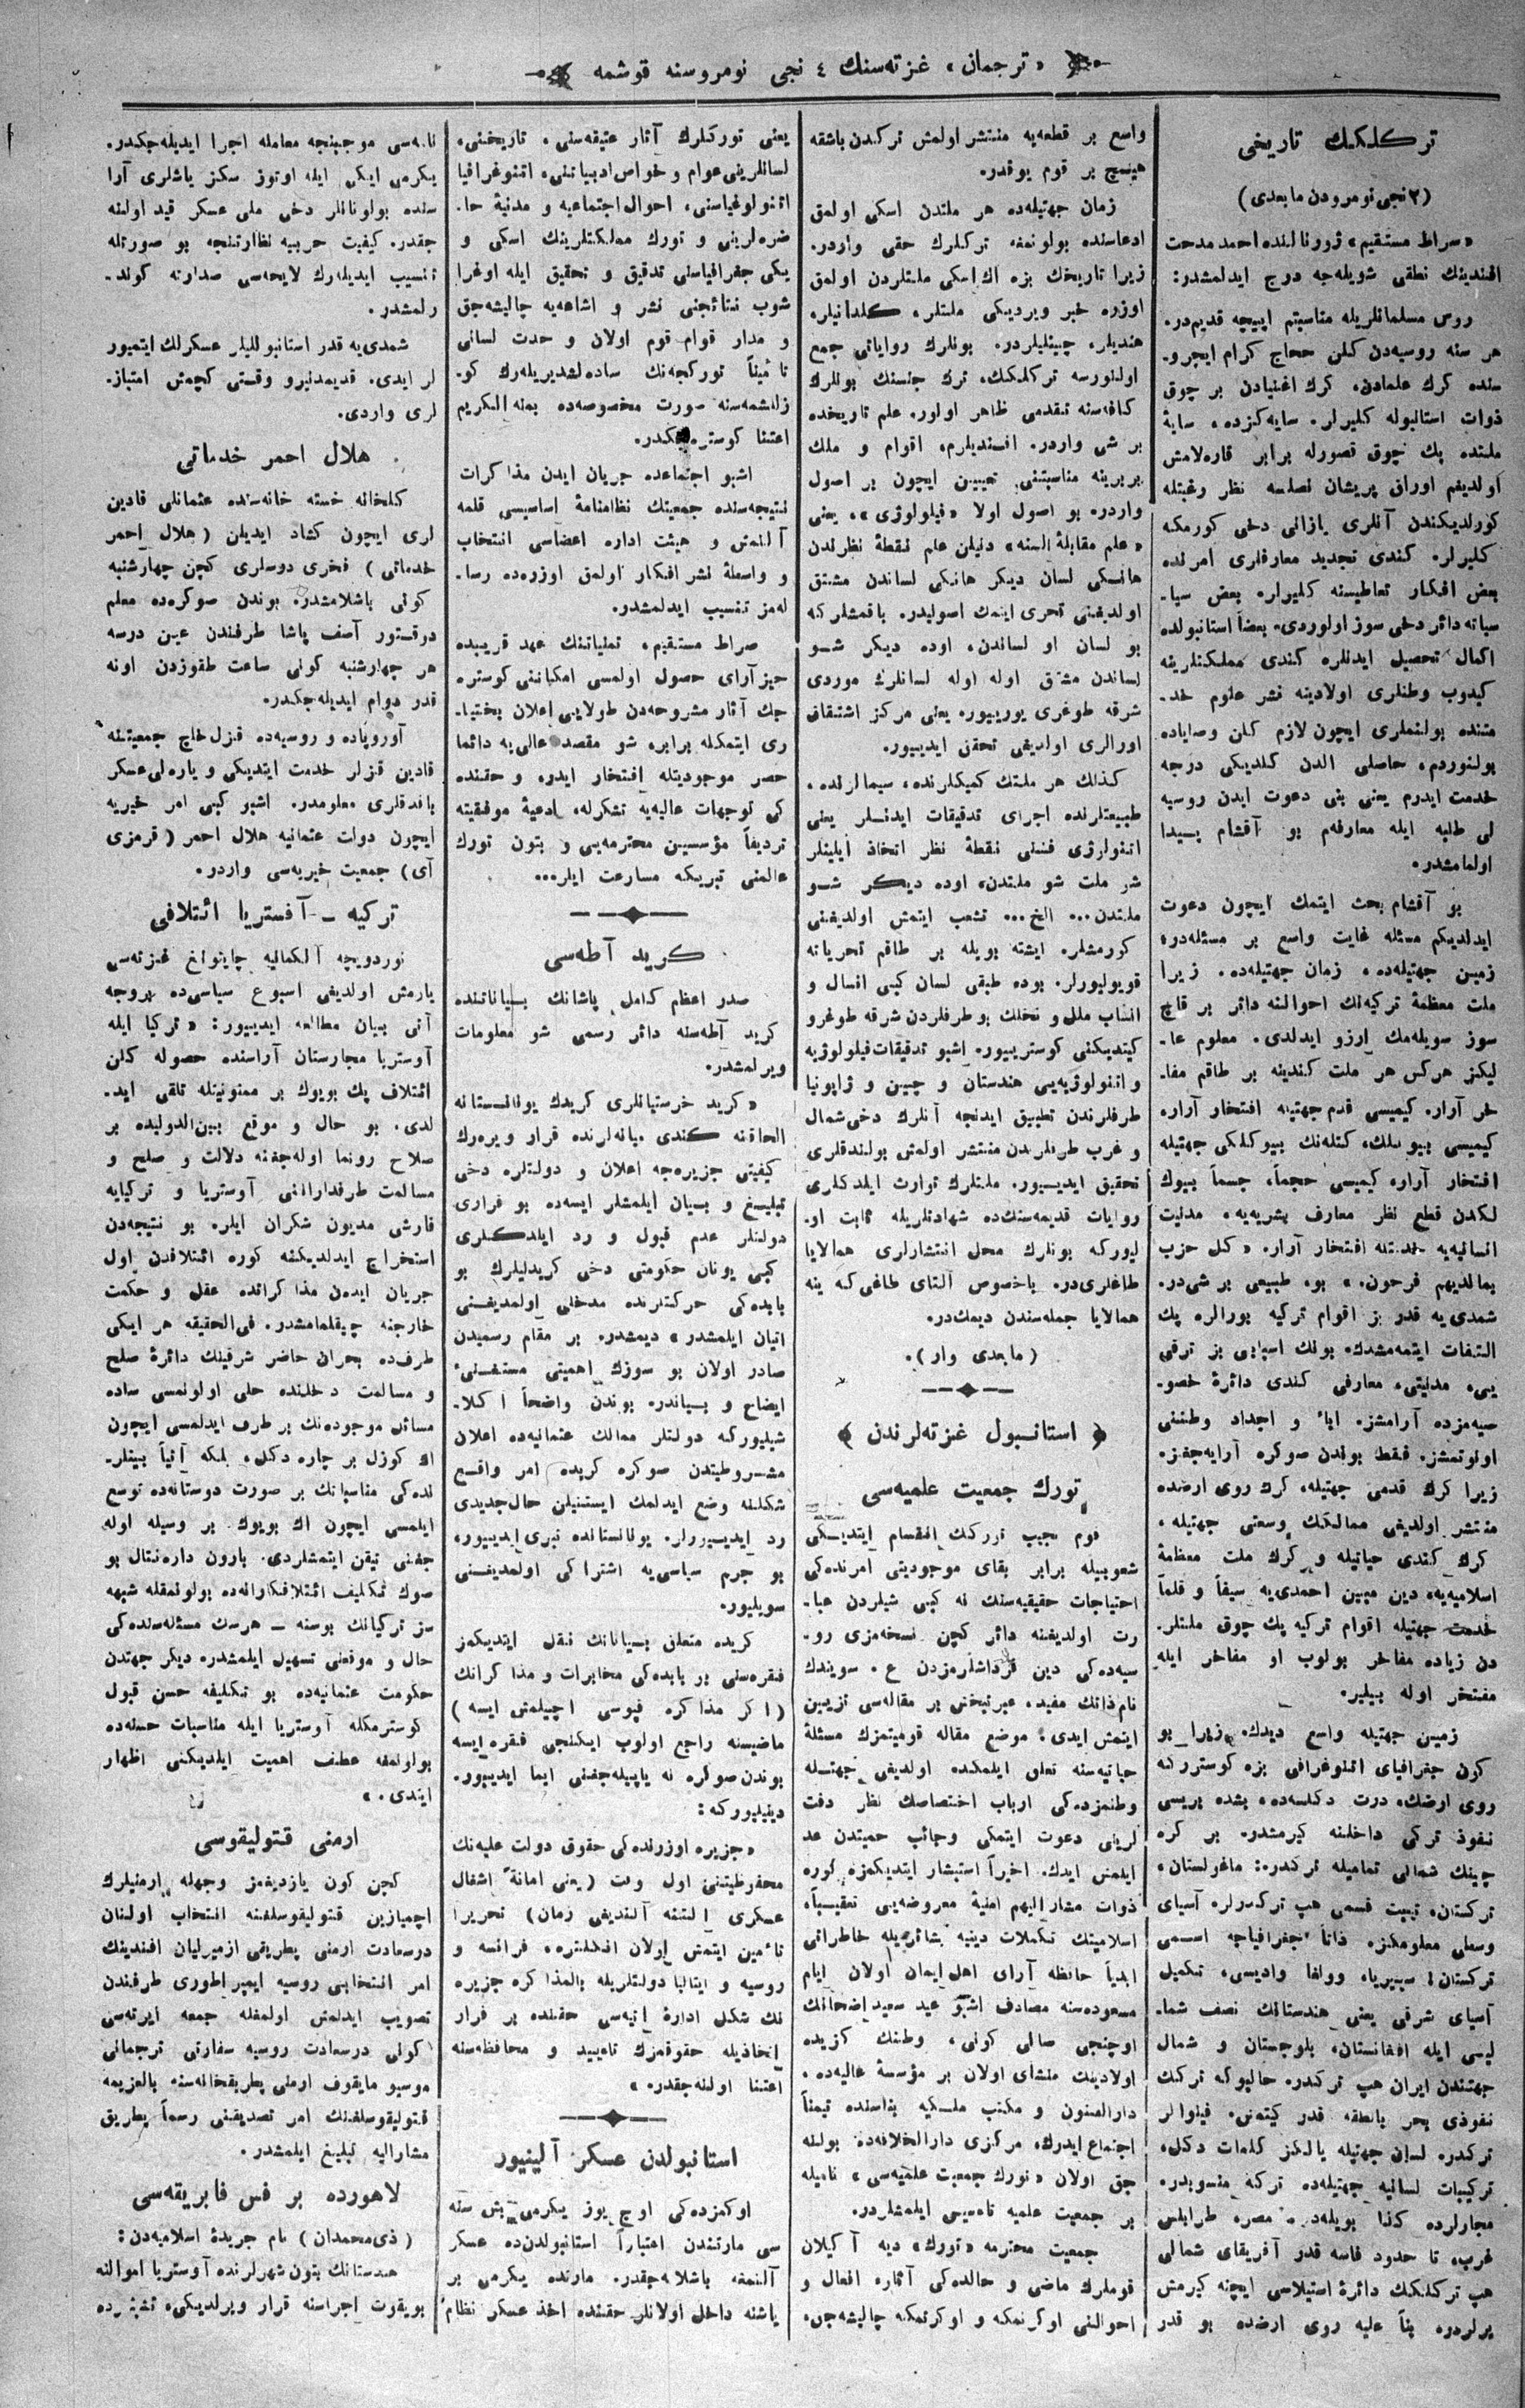 « ترجمان » غزته‌سنك ٤ نجی نومروسنه قوشمه
تركلكك تاریخی
(۲ نجی نومرودن مابعدی)
«سراط مستقیم» ژورنالنده احمد مدحت
افندینك نطقی شویله‌جه درج ایدلمشدر:
روس مسلمانلریله مناسبتم اییجه قدیم‌در.
هر سنه روسیه‌دن كلن حجاج كرام ایچرو-
سنده كرك علمادن، كرك اغنیادن بر چوق
ذوات استانبوله كلیرلر. سایه‌كزده، سایهٔ
ملتده پك چوق قصورله برابر قاره‌لامش
اولدیغم اوراق پریشان نصلسه نظر رغبتله
كورلدیكندن آنلری یازانی دخی كورمكه
كلیرلر. كندی تجدید معارفلری امرنده
بعض افكار تعاطیسنه كلیرلر. بعض سیا-
سیاته دائر دخی سوز اولوردی. بعضاً استانبولده
اكمال تحصیل ایدنلره كندی مملكتلرینه
كیدوب وطنلری اولادینه نشر علوم خد-
متنده بولنملری ایچون لازم كلن وصایاده
بولنوردم، حاصلی الدن كلدیكی درجه
خدمت ایدرم یعنی بنی دعوت ایدن روسیه
لی طلبه ایله معارفم بو آقشام پیدا
اولمامشدر.
بو آقشام بحث ایتمك ایچون دعوت
ایدلدیكم مسئله غایت واسع بر مسئله‌در.
زمین جهتیله‌ده، زمان جهتیله‌ده. زیرا
ملت معظمهٔ تركیه‌نك احوالنه دائر بر قاچ
سوز سویله‌مك ارزو ایدلدی. معلوم عا-
لیكز هركس هر ملت كندینه بر طاقم مفا-
خر آرار. كیمیسی قدم جهتیله افتخار آرار.
كیمیسی بیوكلك، كتله‌نك بیوكلكی جهتیله
افتخار آرار. كیمیسی حجماً، جسماً بیوك
لكدن قطع نظر معارف بشریه‌یه، مدنیت
انسانیه‌یه خدمتله افتخار آرار. «كل حزب
بمالدیهم فرحون.» بو، طبیعی بر شی‌در.
شمدی‌یه قدر بز اقوام تركیه بورالره پك
التفات ایتمه‌مشدك. بونك اسبابی بز ترقی
یی، مدنیتی، معارفی كندی دائرهٔ خصو-
صیه‌مزده آرامشز. اباء و اجداد وطننی
اونوتمشز. فقط بوندن صوكره آرایه‌جغز.
زیرا كرك قدمی جهتیله، كرك روی ارضده
منتشر اولدیغی ممالكك وسعتی جهتیله،
كرك كندی حیاتیله و كرك ملت معظمهٔ
اسلامیه‌یه، دین مبین احمدی‌یه سیفاً و قلماً
خدمت جهتیله اقوام تركیه پك چوق ملتلر-
دن زیاده مفاخر بولوب او مفاخر ایله
مفتخر اوله بیلیر.
زمین جهتیله واسع دیدك. زیرا بو
كون جغرافیای اتنوغرافی بزه كوستررته
روی ارضك، درت دكلسه‌ده، بشده بریسی
نفوذ تركی داخلنه كیرمشدر. بر كره
چینك شمالی تمامیله تركدر: ماغولستان،
تركستان، تیبت قسمی هپ تركدرلر. آسیای
وسطی معلومكز. ذاتاً جغرافیاجه اسمی
تركستان! سیبریا، وولغا وادیسی، تكمیل
آسیای شرقی یعنی هندستانك نصف شما-
لیسی ایله افغانستان، بلوچستان و شمال
جهتندن ایران هپ تركدر. حالبوكه تركك
نفوذی بحر بالطقه قدر كیتمش. فینوالر
تركدر. لسان جهتیله یالكز كلمات دكل،
تركیبات لسانیه جهتیله‌ده تركه منسوبدر.
مجارلرده كذا بویله‌در. مصر، طرابلس
غرب، تا حدود فاسه قدر آفریقای شمالی
هپ تركلكك دائرهٔ استیلاسی ایچنه كیرمش
یرلردر. بناً علیه روی ارضده بو قدر
واسع بر قطعه‌یه منتشر اولمش تركدن باشقه
هیچ بر قوم یوقدر.
زمان جهتیله‌ده هر ملتدن اسكی اولمق
ادعاسنده بولونمغه تركلرك حقی واردر.
زیرا تاریخك بزه اك اسكی ملتلردن اولمق
اوزره خبر ویردیكی ملتلر، كلدانیلر،
هندیلر، چینلیلردر. بونلرك روایاتی جمع
اولنورسه تركلكك، ترك جنسنك بونلرك
كافه‌سنه تقدمی ظاهر اولور. علم تاریخده
بر شی واردر. افندیلرم، اقوام و ملل
بربرینه مناسبتنی تعیین ایچون بر اصول
واردر. بو اصول اولا «فیلولوژی»، یعنی
«علم مقابلهٔ السنه» دنیلن علم نقطهٔ نظرندن
هانكی لسان دیكر هانكی لساندن مشتق
اولدیغنی تحری ایتمك اصولیدر. باقمشلر كه
بو لسان او لساندن، اوده دیكر شو
لساندن مشتق اوله اوله لسانلرك موردی
شرقه طوغری یوریبور. یعنی مركز اشتقاق
اورالری اولدیغی تحقق ایدیبور.
كذلك هر ملتك كمیكلرنده، سیمالرنده،
طبیعتلرنده اجرای تدقیقات ایدنلر یعنی
اتنولوژی فننی نقطهٔ نظر اتخاذ ایلینلر
شو ملت شو ملتدن، اوده دیكر شو
ملتدن... الخ... تشعب ایتمش اولدیغنی
كورمشلر. ایشته بویله بر طاقم تحریاته
قویولیورلر. بوده طبقی لسان كبی انسال و
انساب ملل و نحلك بو طرفلردن شرقه طوغرو
كیتدیكنی كوستریبور. اشبو تدقیقات فیلولوژیه
و اتنولوژیه‌یی هندستان و چین و ژاپونیا
طرفلرندن تطبیق ایدنجه آنلرك دخی شمال
و غرب طرفلرندن منتشر اولمش بولندقلری
تحقیق ایدیبور. ملتلرك توارث ایلدكلری
روایات قدیمه‌سنك‌ده شهادتلریله ثابت او-
لیوركه بونلرك محل انتشارلری همالایا
طاغلری‌در. باخصوص آلتای طاغی كه ینه
همالایا جمله‌سندن دیمك‌در.
(مابعدی وار).
﴿ استانبول غزته‌لرندن ﴾
تورك جمعیت علمیه‌سی
قوم نجیب توركك انقسام ایتدیكی
شعوبیله برابر بقای موجودیتی امرنده‌كی
احتیاجات حقیقیه‌سنك نه كبی شیلردن عبا-
رت اولدیغنه دائر كچن نسخه‌مزی رو-
سیه‌ده‌كی دین قرداشلرمزدن ع. سویندك
نام ذاتك مفید، عبرتبخش بر مقاله‌سی تزیین
ایتمش ایدی. موضع مقاله قومیتمزك مسئلهٔ
حیاتیه‌سنه تعلق ایلمكده اولدیغی جهتله
وطنمزده‌كی ارباب اختصاصك نظر دقت
لرینی دعوت ایتمكی وجائب حمیتدن عد
ایلمش ایدك. اخیراً استبشار ایتدیكمزه كوره
ذوات مشارالیهم امنیهٔ معروضه‌یی تعقیباً،
اسلامیتك تكملات دینیه بشائریله خاطراتی
ابدیاً حافظه آرای اهل ایمان اولان ایام
مسعوده‌سنه مصادف اشبو عید سعید اضحانك
اوچنجی صالی كونی، وطنك كزیده
اولادینك منشای اولان بر مؤسسهٔ عالیه‌ده،
دارالفنون و مكتب ملكیه بناسنده تیمناً
اجتماع ایدرك، مركزی دارالخلافه‌ده بولنه
جق اولان «تورك جمعیت علمیه‌سی» نامیله
بر جمعیت علمیه تأسیس ایلمشلردر.
جمعیت محترمه «تورك» دیه آكیلان
قوملرك ماضی و حالده‌كی آثار، افعال و
احوالنی اوكرنمكه و اوكرتمكه چالیشه‌جق،
یعنی توركلرك آثار عتیقه‌سنی، تاریخنی،
لسانلرینی عوام و خواص ادبیاتنی، اتنوغرافیا
اتنولوغیاسنی، احوال اجتماعیه و مدنیهٔ حا-
ضره‌لرینی و تورك مملكتلرینك اسكی و
یكی جغرافیاسنی تدقیق و تحقیق ایله اوغرا
شوب نتائجنی نشر و اشاعه‌یه چالیشه‌جق
و مدار قوام قوم اولان و حدت لسانی
تأمیناً توركجه‌نك ساده‌لشدیریله‌رك كو-
زللشمه‌سنه صورت مخصوصه‌ده بمنه الكریم
اعتنا كوستره‌جكدر.
اشبو اجتماعده جریان ایدن مذاكرات
نتیجه‌سنده جمعیتك نظامنامهٔ اساسیسی قلمه
آلنمش و هیئت اداره اعضاسی انتخاب
و واسطهٔ نشر افكار اولمق اوزره‌ده رسا-
له‌مز تنسیب ایدلمشدر.
صراط مستقیم، تمنیاتنك عهد قریبده
حیز آرای حصول اولمسی امكاننی كوستره
جك آثار مشروحه‌دن طولایی اعلان بختیا-
ری ایتمكله برابر، شو مقصد عالی‌یه دائما
حصر موجودیتله افتخار ایدر، و حقنده
كی توجهات عالیه‌یه تشكرله، ادعیهٔ موفقیته
تردیفاً مؤسسین محترمه‌یی و بتون تورك
عالمنی تبریكه مسارعت ایلر...
كرید آطه‌سی
صدر اعظم كامل پاشانك بیاناتنده
كرید آطه‌سنه دائر رسمی شو معلومات
ویرلمشدر.
«كرید خرستیانلری كریدك یونانستانه
الحاقنه كندی میانه‌لرنده قرار ویره‌رك
كیفیتی جزیره‌جه اعلان و دولتلره دخی
تبلیغ و بیان ایلمشلر ایسه‌ده بو قراری
دولتلر عدم قبول و رد ایلدكلری
كبی یونان حكومتی دخی كریدلیلرك بو
بابده‌كی حركتلرنده مدخلی اولمدیغنی
اتیان ایلمشدر» دیمشدر. بر مقام رسمیدن
صادر اولان بو سوزك اهمیتی مستغنیٔ
ایضاح و بیاندر. بوندن واضحاً اكلا-
شیلیوركه دولتلر ممالك عثمانیه‌ده اعلان
مشروطیتدن صوكره كریده امر واقع
شكلنه وضع ایدلمك ایستنیلن حال جدیدی
رد ایدیبورلر. یونانستانده تبری ایدیبور،
بو جرم سیاسی‌یه اشتراكی اولمدیغنی
سویلیور.
كریده متعلق بیاناتك نقل ایتدیكمز
فقره‌سی بر بابده‌كی مخابرات و مذاكراتك
(اكر مذاكره قپوسی اچیلمش ایسه)
ماضیسنه راجع اولوب ایكنجی فقره ایسه
بوندن صوكره نه یاپیله‌جغنی ایما ایدیبور.
دینیلیوركه:
«جزیره اوزرنده‌كی حقوق دولت علیه‌نك
محفوظیتنی اول وقت (یعنی امانةً اشغال
عسكری التنه آلندیغی زمان) تحریراً
تأمین ایتمش اولان انكلتره، فرانسه و
روسیه و ایتالیا دولتلریله بالمذاكره جزیره
نك شكل ادارهٔ آتیه‌سی حقنده بر قرار
اتخاذیله حقوقمزك تأیید و محافظه‌سنه
اعتنا اولنه‌جقدر.»
استانبولدن عسكر آلینیور
اوكمزده‌كی اوچ یوز یكرمی بش سنه
سی مارتندن اعتباراً استانبولدن‌ده عسكر
آلنمغه باشلانه‌جقدر. مارتده یكرمی بر
یاشنه داخل اولانلر حقنده اخذ عسكر نظام
نامه‌سی موجبنجه معامله اجرا ایدیله‌جكدر.
یكرمی ایكی ایله اوتوز سكز یاشلری آرا
سنده بولونانلر دخی ملی عسكر قید اولنه
جقدر. كیفیت حربیه نظارتنجه بو صورتله
تنسیب ایدیله‌رك لایحه‌سی صدارته كوند-
رلمشدر.
شمدی‌یه قدر استانبوللیلر عسكرلك ایتمیور
لر ایدی. قدیمدنبرو وقتی كچمش امتیاز-
لری واردی.
هلال احمر خدماتی
كلخانه خسته خانه‌سنده عثمانلی قادین
لری ایچون كشاد ایدیلن (هلال احمر
خدماتی) فخری دوسلری كچن چهارشنبه
كونی باشلامشدر. بوندن صوكره‌ده معلم
دوقتور آصف پاشا طرفندن عین درسه
هر چهارشنبه كونی ساعت طقوزدن اونه
قدر دوام ایدیله‌جكدر.
آوروپاده و روسیه‌ده قزل خاچ جمعیتنه
قادین قزلر خدمت ایتدیكی و یاره‌لی عسكر
باقدقلری معلومدر. اشبو كبی امر خیریه
ایچون دولت عثمانیه هلال احمر (قرمزی
آی) جمعیت خیریه‌سی واردر.
تركیه — آفستریا ائتلافی
نوردویچه آلكمانیه چایتونغ غزته‌سی
یازمش اولدیغی اسبوع سیاسی‌ده بروجه
آتی بیان مطالعه ایدیبور: «تركیا ایله
آوستریا مجارستان آراسنده حصوله كلن
ائتلاف پك بویوك بر ممنونیتله تلقی اید-
لدی. بو حال و موقع بین‌الدولیده بر
صلاح رونما اوله‌جغنه دلالت و صلح و
مسالمت طرفدارانی آوستریا و تركیایه
قارشی مدیون شكران ایلر. بو نتیجه‌دن
استخراج ایدلدیكنه كوره ائتلافدن اول
جریان ایدن مذاكراتده عقل و حكمت
خارجنه چیقلمامشدر. فی‌الحقیقه هر ایكی
طرف‌ده بحران حاضر شرقینك دائرهٔ صلح
و مسالمت دخلنده حلی اولونمسی ساده
مسائل موجوده‌نك بر طرف ایدلمسی ایچون
اك كوزل بر چاره دكل، بلكه آتیاً بینلر-
نده‌كی مناسباتك بر صورت دوستانه‌ده توسع
ایلمسی ایچون اك بویوك بر وسیله اوله
جغنی تیقن ایتمشلردی. بارون دارنتال بو
صوك تكلیف ائتلافكارانه‌ده بولونمقله شبهه
سز تركیانك بوسنه — هرسك مسئله‌سنده‌كی
حال و موقعنی تسهیل ایلمشدر، دیكر جهتدن
حكومت عثمانیه‌ده بو تكلیفه حسن قبول
كوسترمكله آوستریا ایله مناسبات حسنه‌ده
بولونمغه عطف اهمیت ایلدیكنی اظهار
ایتدی.»
ارمنی قتولیقوسی
كچن كون یازدیغمز وجهله ارمنیلرك
اچمیازین قتولیقوسلغنه انتخاب اولنان
درسعادت ارمنی بطریقی ازمیرلیان افندینك
امر انتخابی روسیه ایمپراطوری طرفندن
تصویب ایدلمش اولمغله جمعه ایرته‌سی
كونی درسعادت روسیه سفارتی ترجمانی
موسیو مایقوف ارمنی بطریقخانه‌سنه بالعزیمه
قتولیقوسلغنك امر تصدیقنی رسماً بطریق
مشارالیه تبلیغ ایلمشدر.
لاهورده بر فس فابریقه‌سی
(ذی محمدان) نام جریدهٔ اسلامیه‌دن:
هندستانك بتون شهرلرنده آوستریا اموالنه
بویقوت اجراسنه قرار ویرلدیكی،